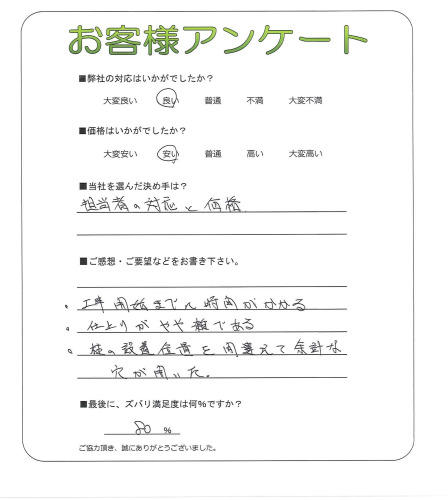 お客様アンケート
■弊社の対応はいかがでしたか？
大変良い 良い 普通 不満 大変不満
■価格はいかがでしたか？
大変安い 安い 普通 高い 大変高い
■当社を選んだ決め手は？
担当者の対応と価格
■ご感想・ご要望などをお書き下さい。
。工事開始までの時間がかかる
。仕上りがやや雑である
。柱の設置位置を間違えて余計な
穴が開いた。
■最後に、ズバリ満足度は何％ですか？
80 ％
ご協力頂き、誠にありがとうございました。